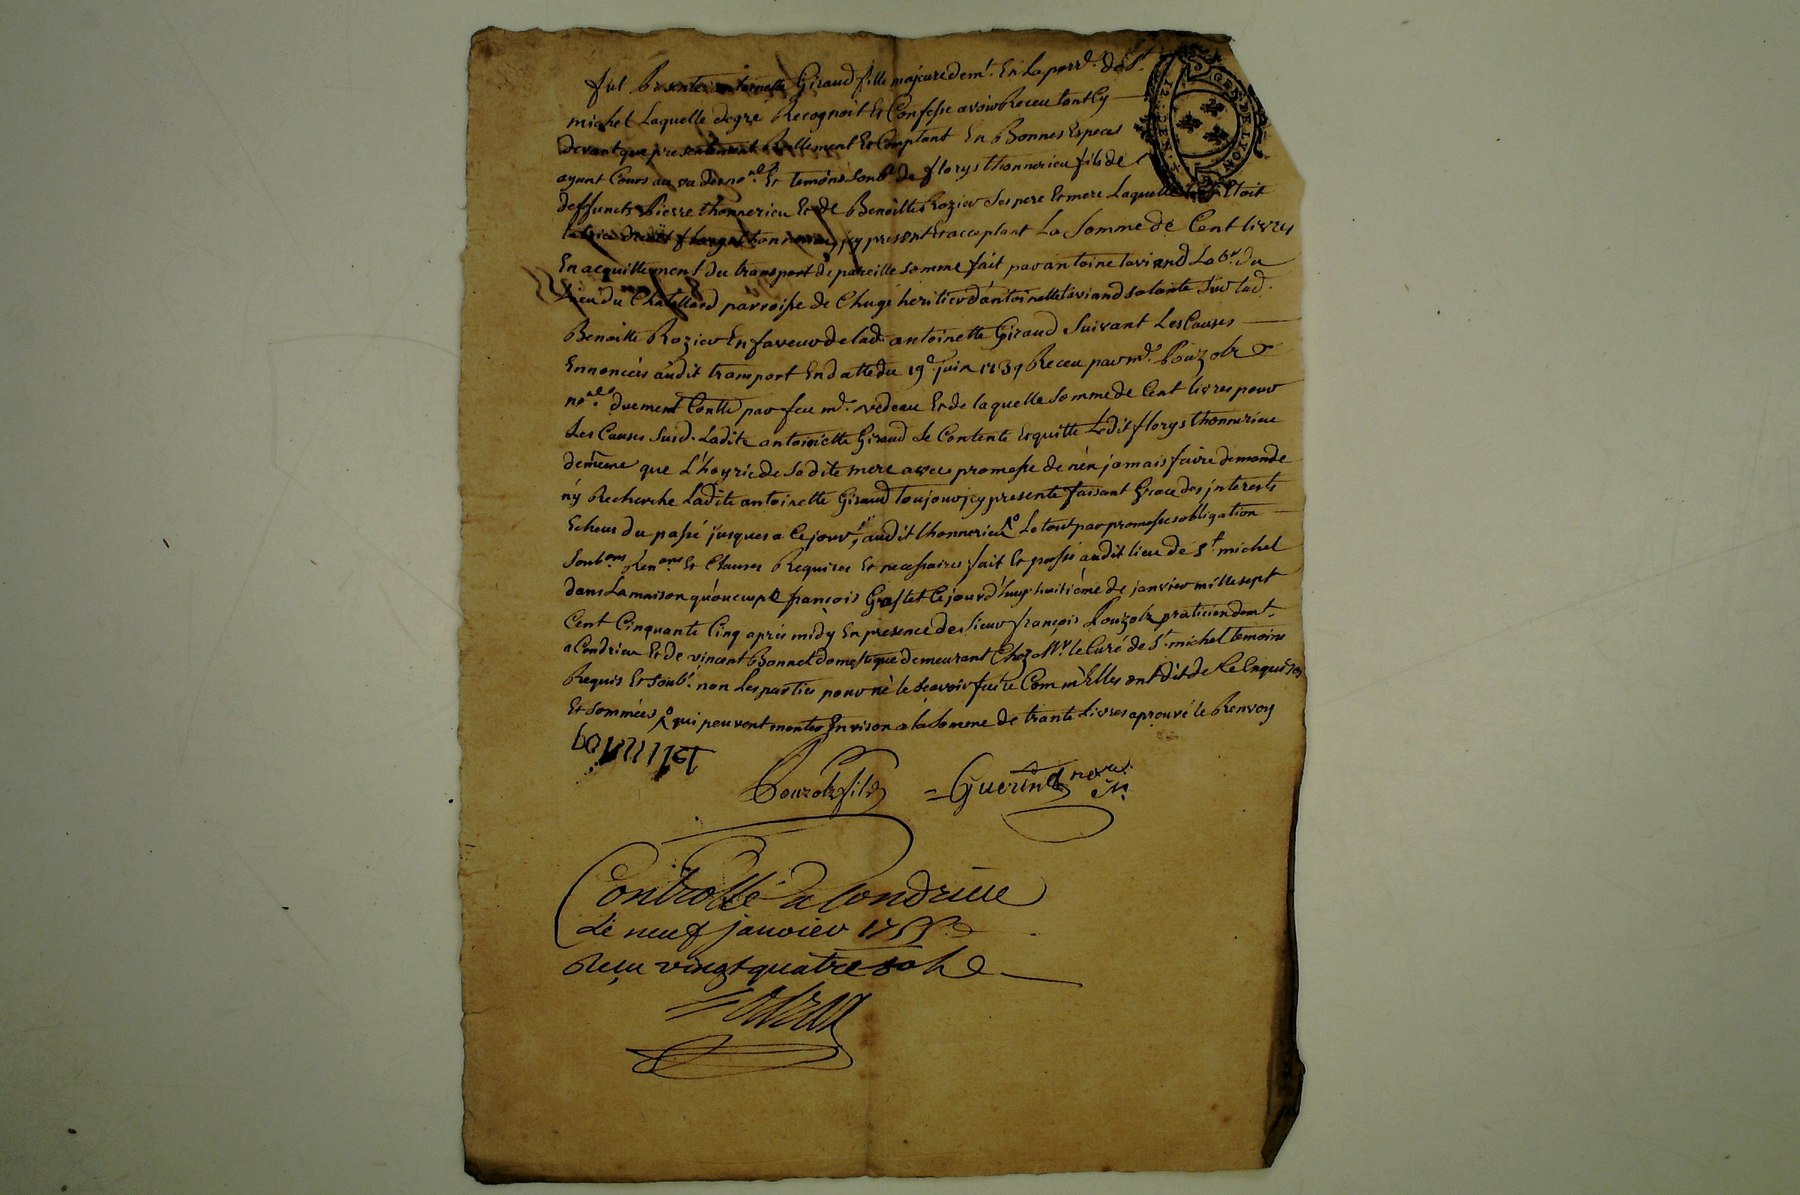 fut Presente antoinette Giraud fille majeure demt. En La parr.e de St.
michel Laquelle de gre Recognoit Et Confesse avoir Receu tant Cy
devant que presentement Reellement Et Comptant En Bonnes Especes
ayant Cours au va des no.res Et temoins soub.s de florys thonnerieu fils de
deffuncts Pierre thonnerieu Et de Benoitte Rozier Ses pere Et mere Laquelle Etoit
florys thonnerieu jcy present Et acceptant La Somme de Cent livres
En acquittement du transport de pareille Somme fait par antoine laviand Lab.r du
lieu du Chatellard parroisse de Chugé heritier d'antoinette laviand sa tante Sur lad.
Benoitte Rozier En faveur de lad. antoinette Giraud Suivant Les Causes
Ennoncées audit transport En datte du 19e. juin 1739 Receu par me. Pouzolz
no.re duement Contllé par feu me. vedeau Et de laquelle Somme de Cent livres pour
Les Causes Susd. Ladite antoinette Giraud Se Contente Et quitte Ledit florys thonnerieu
de même que L'hoyrie de Sadite mere avec promesse de n'en jamais faire demande
n'y Recherche Ladite antoinette Giraud toujour jcy presente faisant Grace des jnterests
Echeus du passé jusques a Ce jour, audit thonnerieu Le tout par promesses obligation
Soub.ons Ren.ons Et Clauses Requises Et necessaires fait Et passé audit lieu de St. michel
dans La maison qu'occupe françois Grastet Ce jourd'huy huitième de janvier mille sept
Cent Cinquante Cinq après midy En presence de Sieur françois Pouzolz praticien demt.
a Condrieu Et de vincent Bonnet domestique demeurant Chez Mr. le Curé de St. michel temoins
Requis Et Soub.s non Les parties pour ne le Sçavoir faire Comm'Elles ont dit de Ce Enquises
Et Sommées qui peuvent monter Environ a la Somme de trante Livres aprouvé le Renvoy
Pouzolz fils Guerin no.re
Contrôllé a Condrieu
Le neuf janvier 1755
Reçu vingt quatre sols
GEN. DE LYON